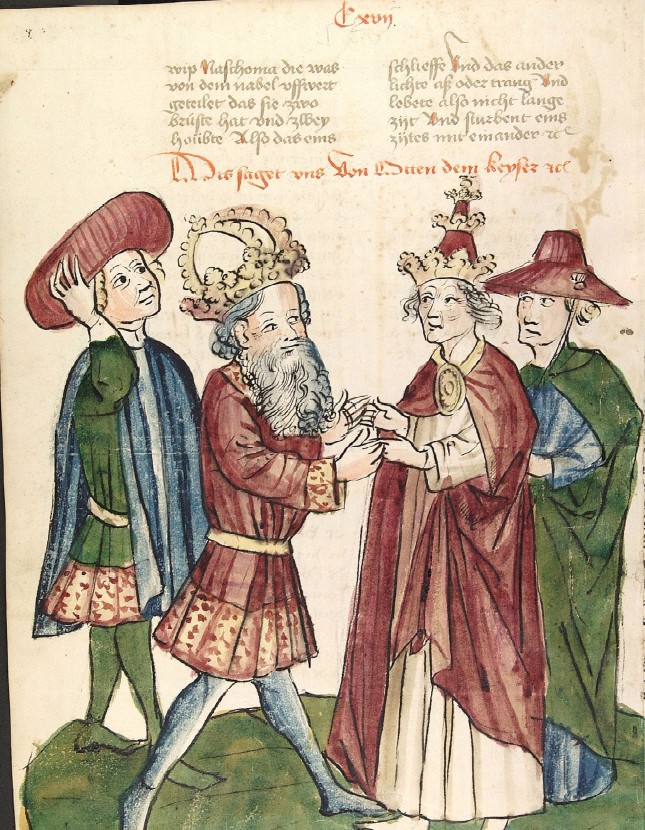 Cxvij
wip Naschoma die was
von dem nabel vffwert
geteilet das sie zwo
brüste hat vnd zwey
hoübte Also das eins
schlieffe Vnd das ander
lichte aß oder trang Vnd
lebete also nicht lange
zijt Vnd sturbent eins
zijtes mit einander ꝛc
Dis saget vns Von Otten dem keyser ꝛc